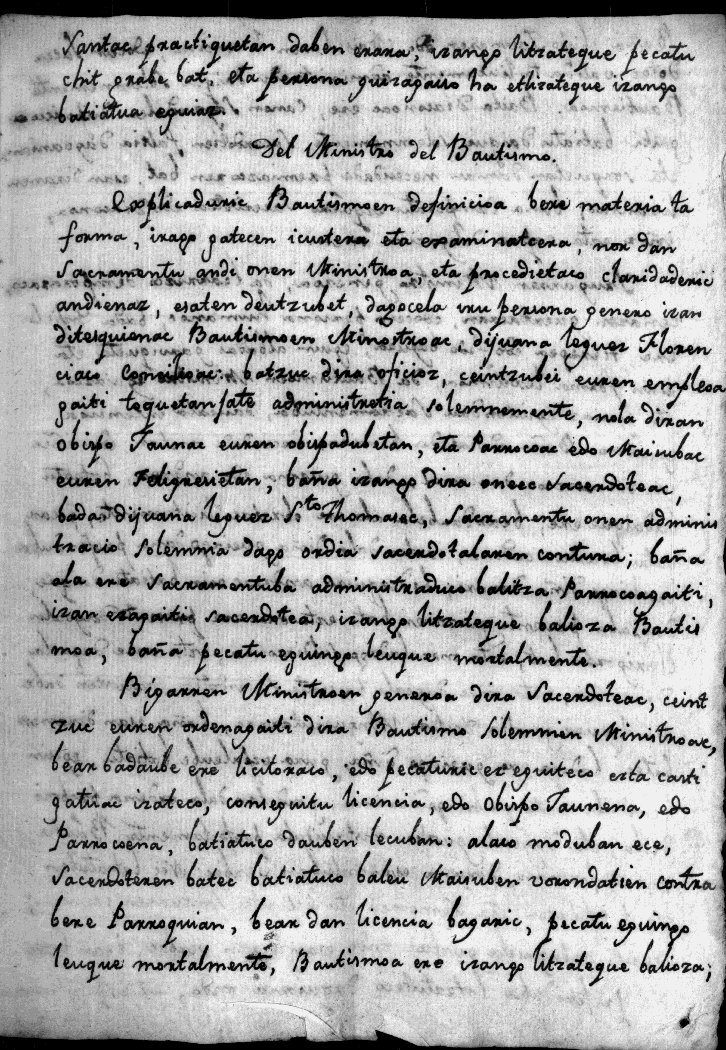 Santac practiquetan daben erara, izango litzateque pecatu
chit grabe bat, eta persona guizagaiso ha etlizateque izango
batiatua eguiaz.
Del Ministro del Bautismo.
Explicaduric Bautismoen definicioa bere materia ta
forma, izago gatecen icustera eta examinatcera, nor dan
Sacramentu andi onen Ministroa, eta procedietaco claridaderic
andienaz, esaten deutzubet, dagocela iru persona genero izan
ditesquienac Bautismoen Minostroac, dijuana leguez Floren
ciaco Concilioac: batzuc dira oficioz, ceintzubei euren empleoa
gaiti toquetan jate administretia solemnemente, nola diran
Obispo Jaunac euren obispadubetan, eta Parrocoac edo Maisubac
euren Feligresietan; baña izango dira oneec Sacerdoteac,
bada dijuana leguez Sto Thomasec, Sacramentu onen adminis
tracio solemnia dago ordia sacerdotalaren contura; baña
ala ere Sacramentuba administraduco balitza Parrocoagaiti,
izan ezagaiti sacerdotea, izango litzateque balioza Bautis
moa, baña pecatu eguingo leuque mortalmente.
Bigarren Ministroen generoa dira Sacerdoteac, ceint
zuc euren ordenagaiti dira Bautismo solemnien Ministroac,
bear badaube ere licitoraco, edo pecaturic ez eguiteco ezta casti
gatuac izateco, conseguitu licencia, edo Obispo Jaunena, edo
Parrocoena, batiatuco dauben lecuban: alaco moduban ece,
Sacerdoteren batec batiatuco baleu Maisuben vorondatien contra
bere Parroquian, bear dan licencia bagaric, pecatu eguingo
leuque mortalmente, Bautismoa ere izango litzateque balioza;